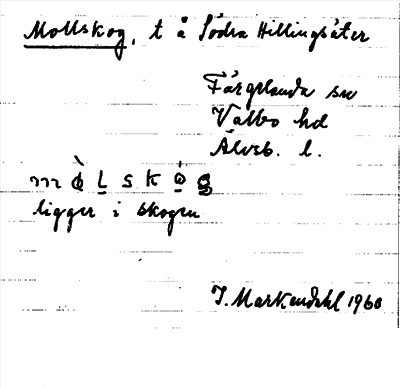 Mollskog, t å Södra Hillingsäter
Färgelanda sn
Valbo hd
Älvsb. l.
m ò l s k ó g
ligger i skogen
J. Markendahl 1960